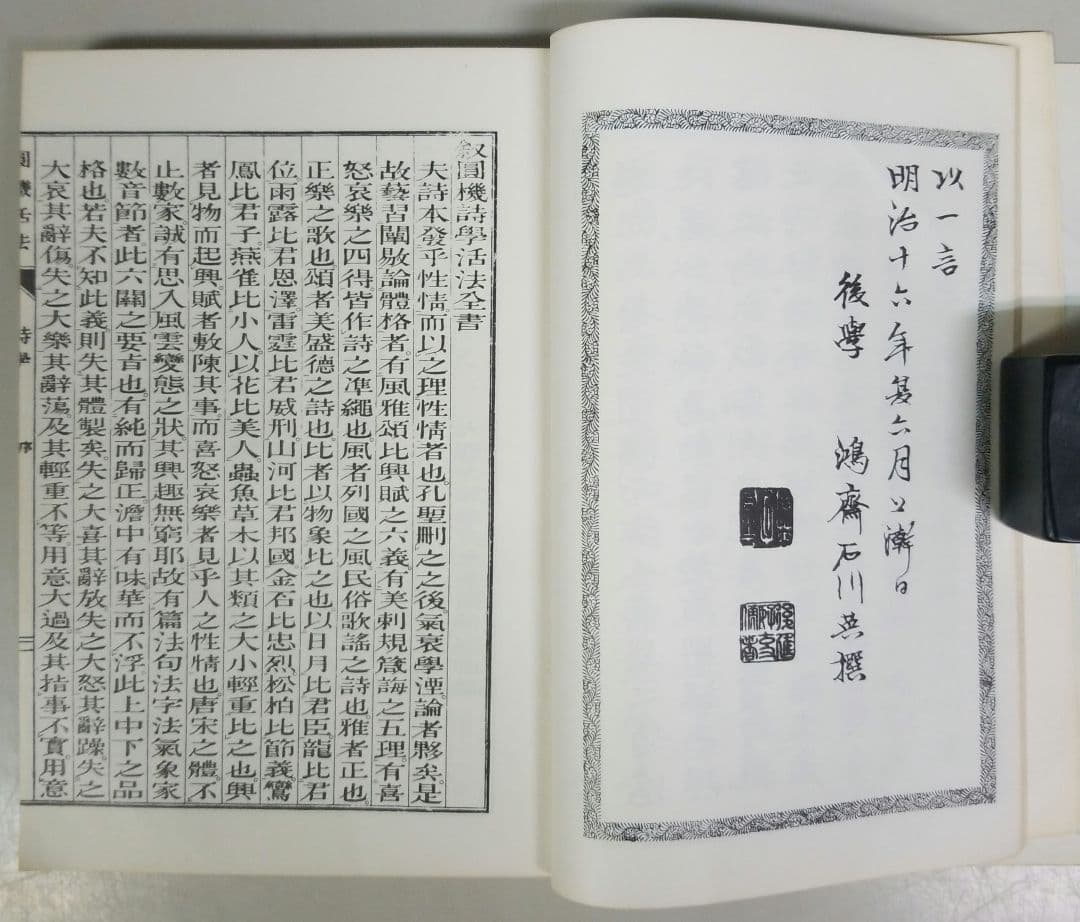 以一言
明治十六年夏六月上澣日
後學　鴻齋石川英撰
叙圓機詩學活法全書
夫詩本發乎性情而以之理性情者也。孔聖刪之之後氣衰學湮。論者夥矣。是
故藝習闡敭論體格者。有風雅頌比興賦之六義。有美刺規箴誨之五理。有喜
怒哀樂之四得。皆作詩之準繩也。風者列國之風民俗歌謠之詩也。雅者正也。
正樂之歌也。頌者美盛德之詩也。比者以物象比之也。以日月比君臣。龍比君
位。雨露比君恩澤。雷霆比君威刑。山河比君邦國。金石比忠烈。松柏比節義。鸞
鳳比君子。燕雀比小人。以花比美人。蟲魚草木以其類之大小輕重比之也。興
者見物而起興。賦者敷陳其事。而喜怒哀樂者見乎人之性情也。唐宋之體。不
止數家。誠有思入風雲變態之狀。其興趣無窮耶。故有篇法句法字法氣象家
數音節者。此六關之要旨也。有純而歸正。澹中有味。華而不浮。此上中下之品
格也。若夫不知此義則失其體製矣。失之大喜其辭放。失之大怒其辭躁。失之
大哀其辭傷。失之大樂其辭蕩。及其輕重不等用意大過。及其拮事不實用意
圓機活法
詩學
序